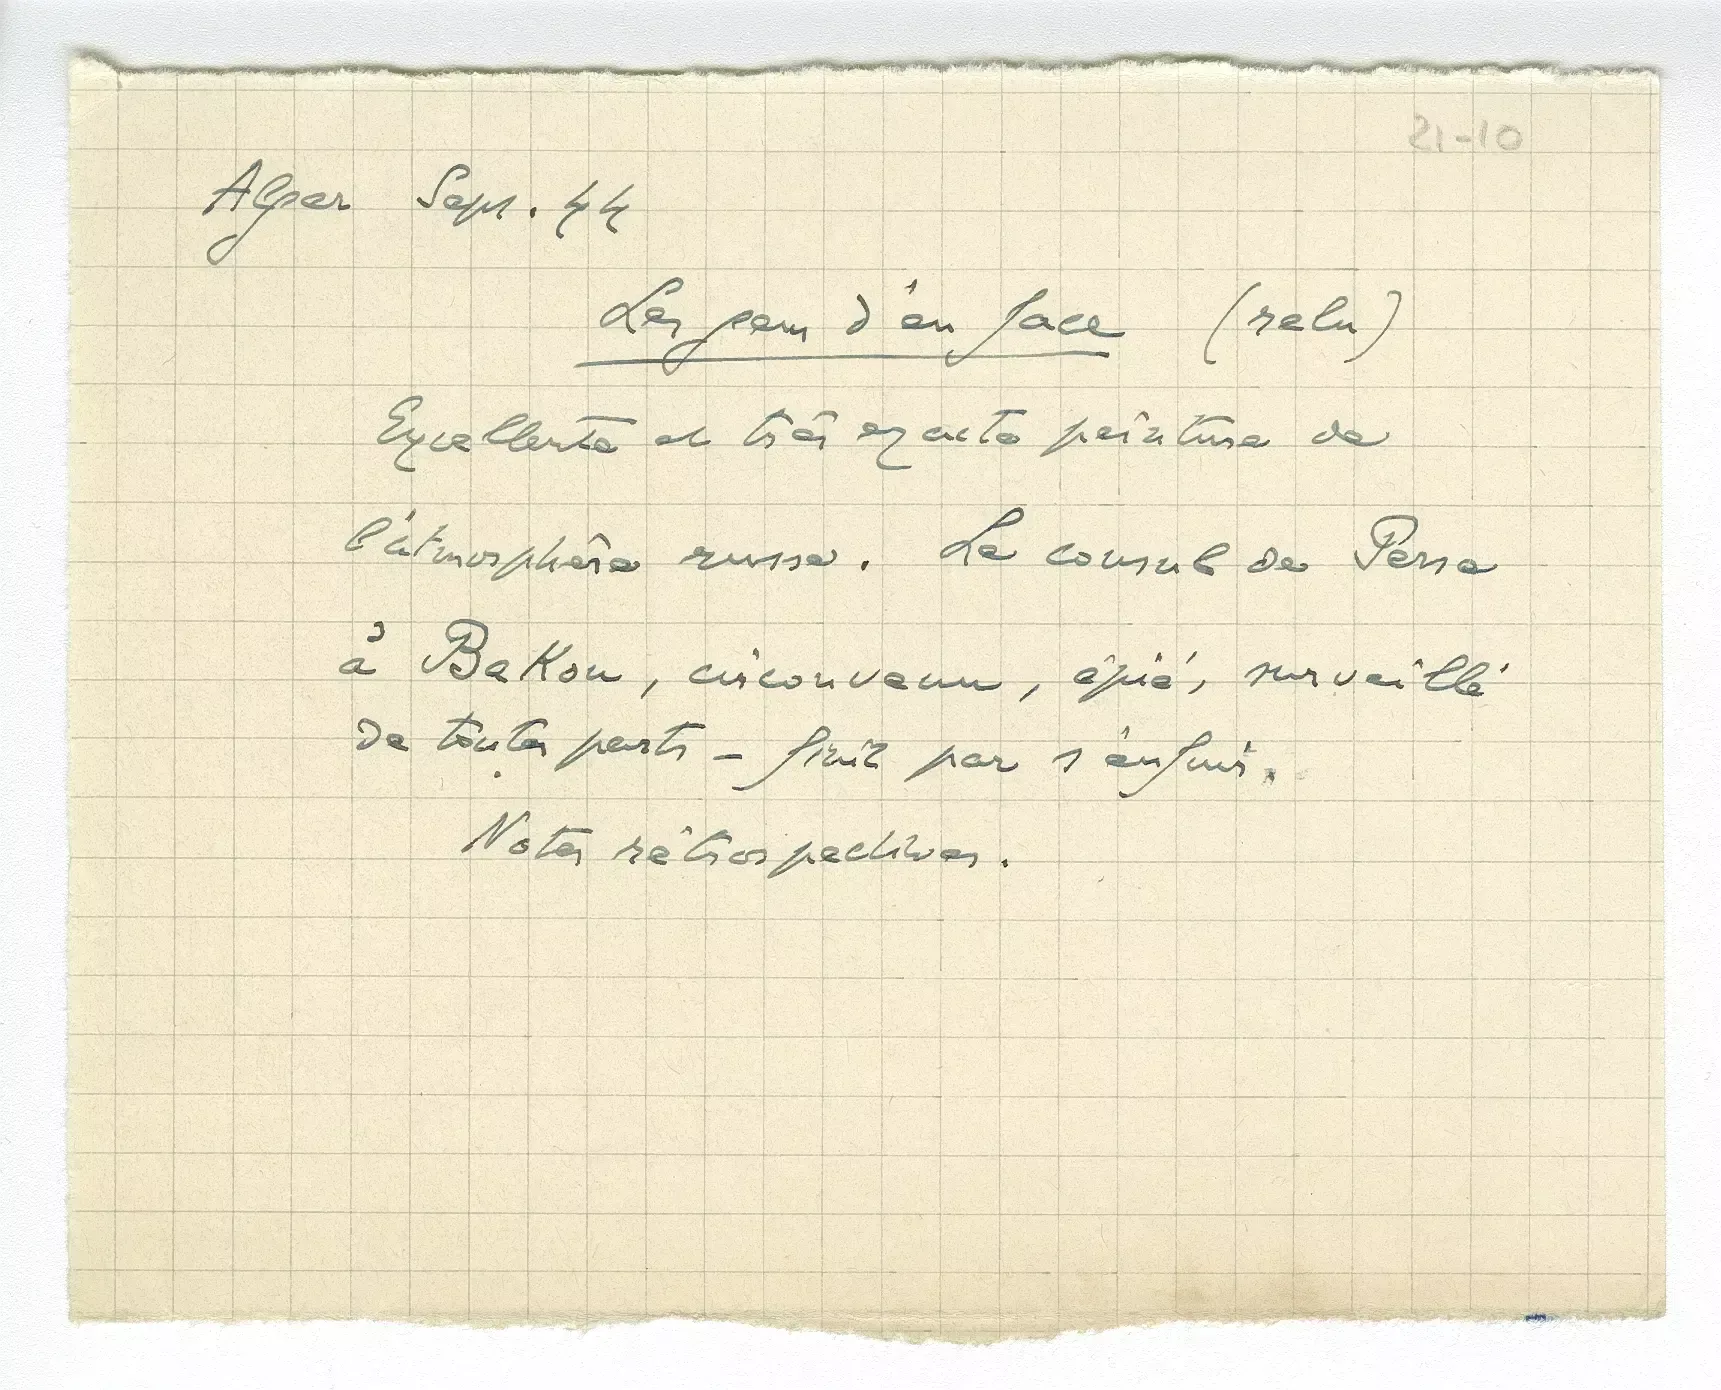 21-10
Alger Sept. 44
Les gens d'en face (relu)
Excellente et très exacte peinture de
l'atmosphère russe. Le consul de Perse
à Bakou, circonvenu, épié, surveillé
de toutes parts - finit par s'enfuir.
Notes rétrospectives.